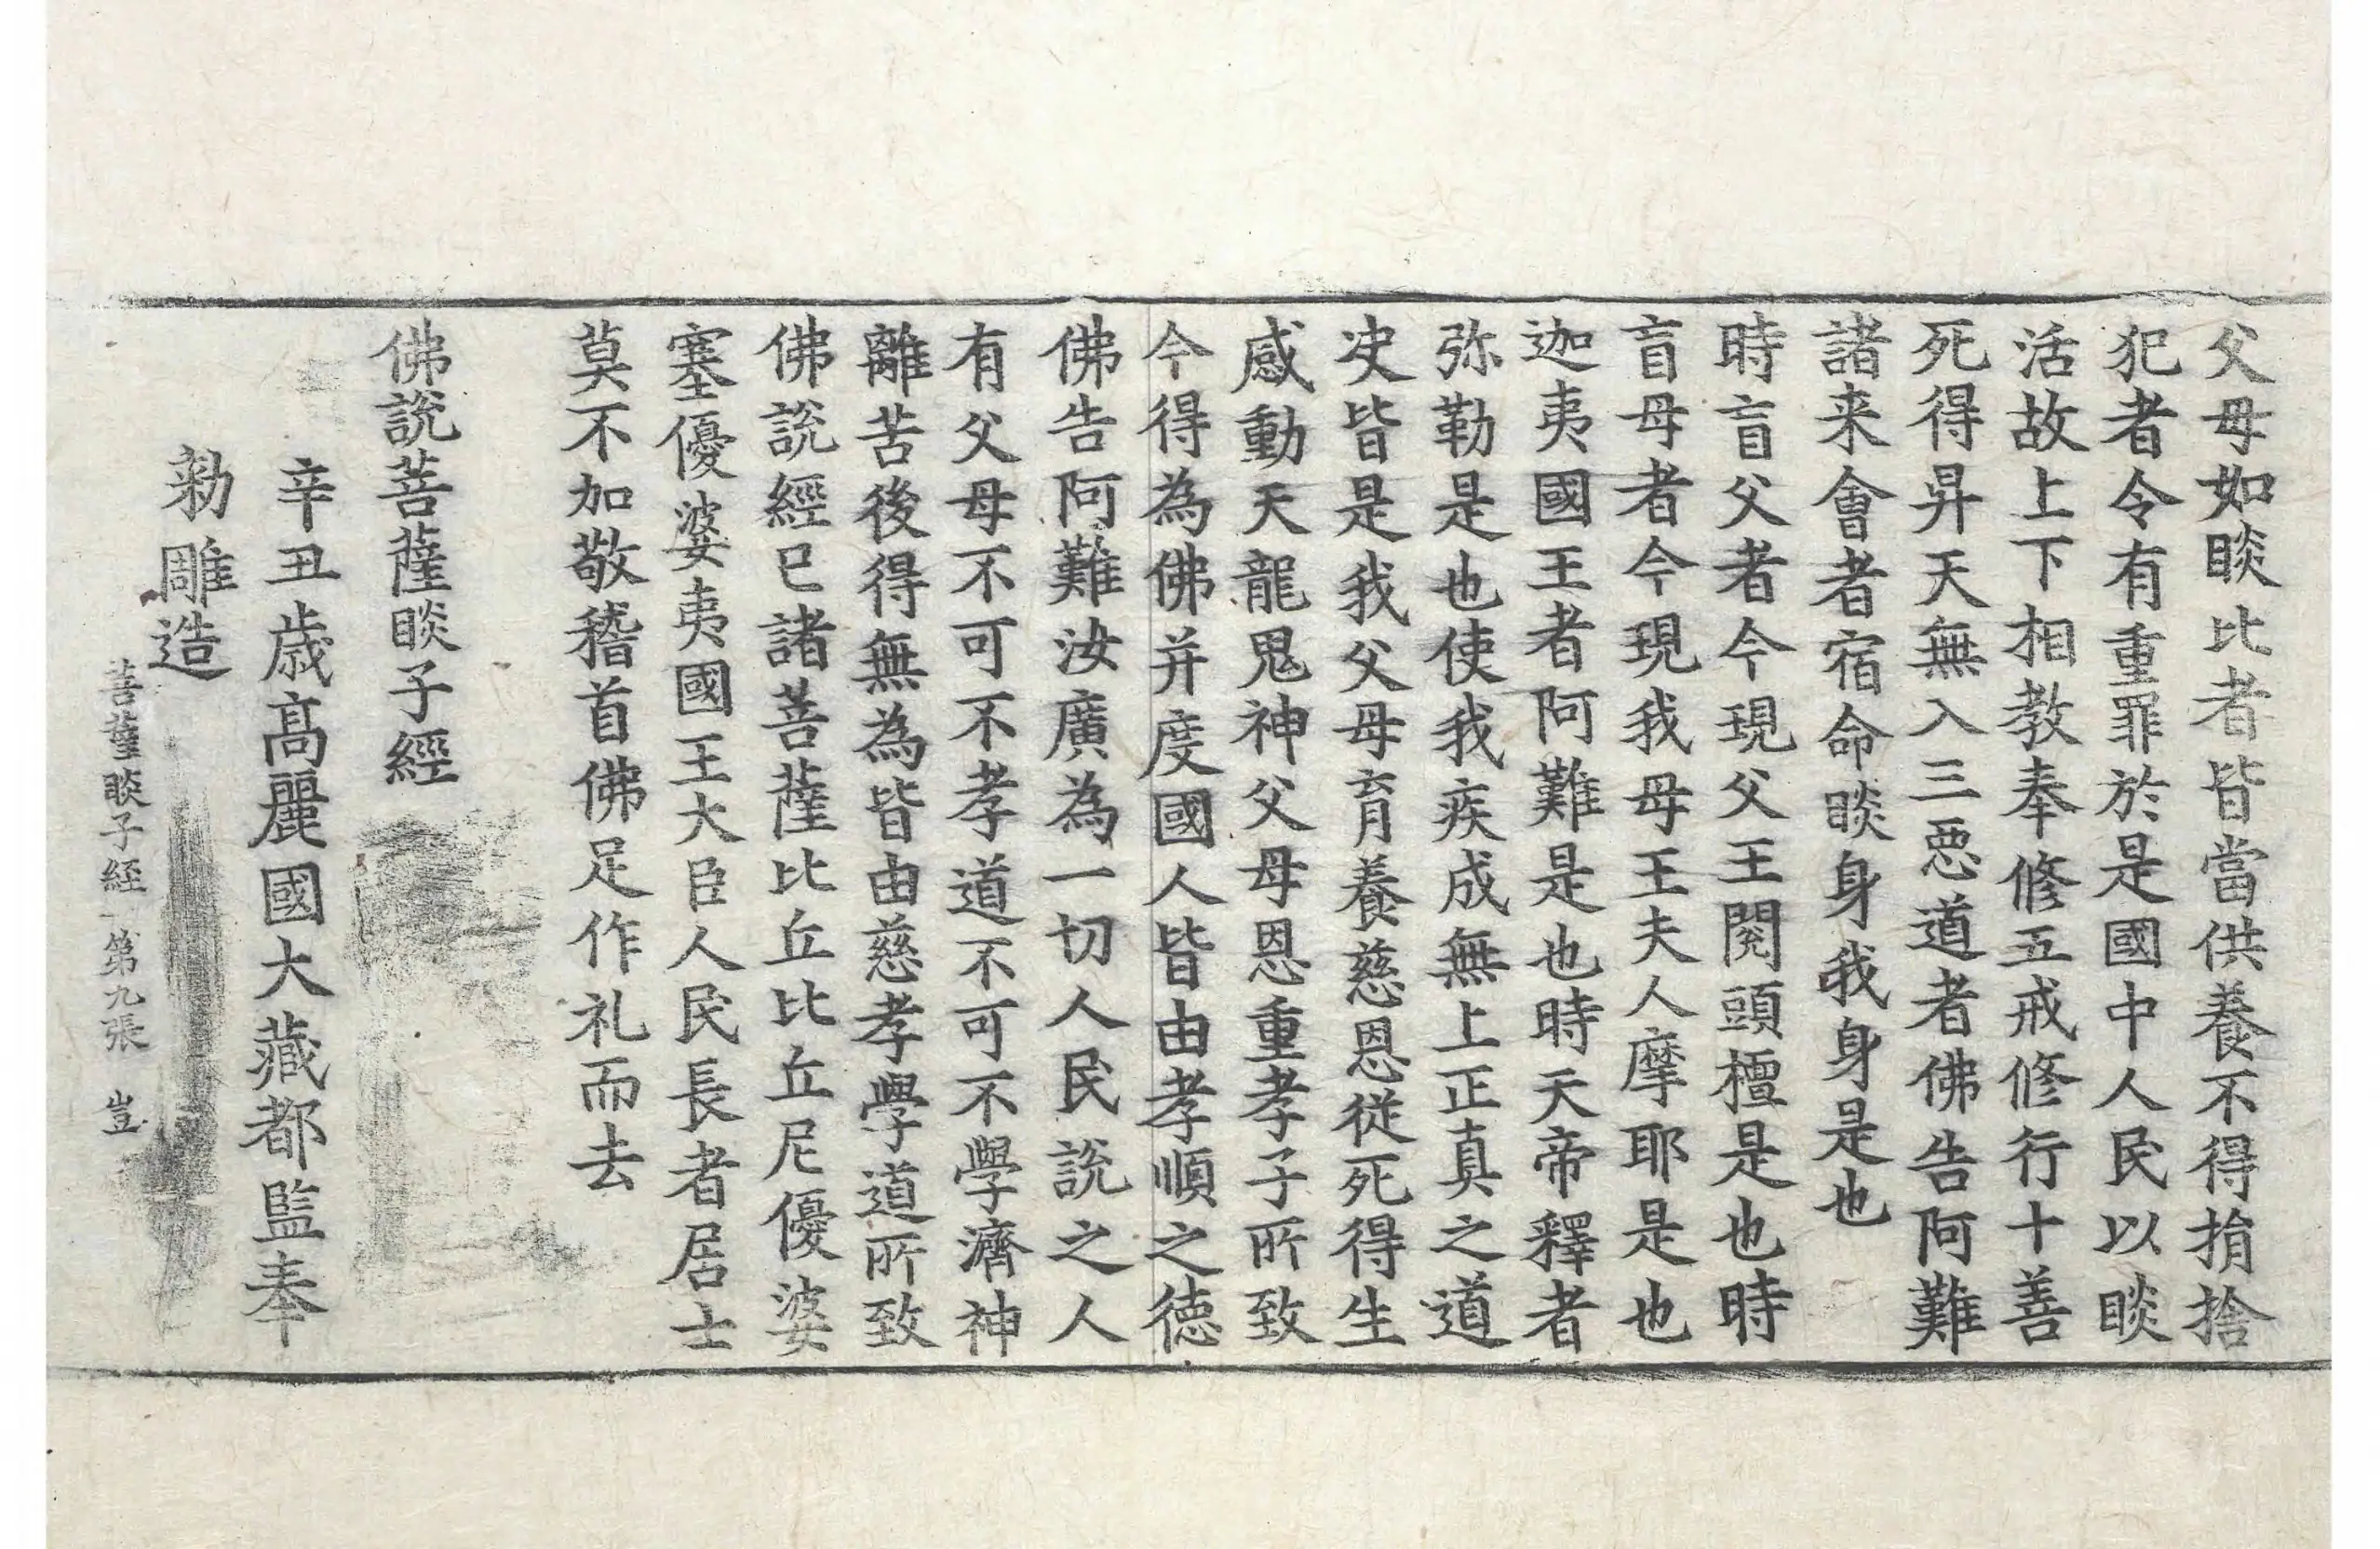 父母如睒比者皆當供養不得捐捨
犯者令有重罪於是國中人民以睒
活故上下相教奉修五戒修行十善
死得昇天無入三惡道者佛告阿難
諸来會者宿命睒身我身是也
時盲父者今現父王閱頭檀是也時
盲母者今現我母王夫人摩耶是也
迦夷國王者阿難是也時天帝釋者
弥勒是也使我疾成無上正真之道
决皆是我父母育養慈恩從死得生
感動天龍鬼神父母恩重孝子所致
今得為佛并度國人皆由孝順之德
佛告阿難汝廣為一切人民說之人
有父母不可不孝道不可不學濟神
離苦後得無為皆由慈孝學道所致
佛說經已諸菩薩比丘比丘尼優婆
塞優婆夷國王大臣人民長者居士
莫不加敬稽首佛足作礼而去
佛說菩薩睒子經
辛丑歳髙麗國大藏都監奉
勑雕造
菩薩睒子経 第九張 豈